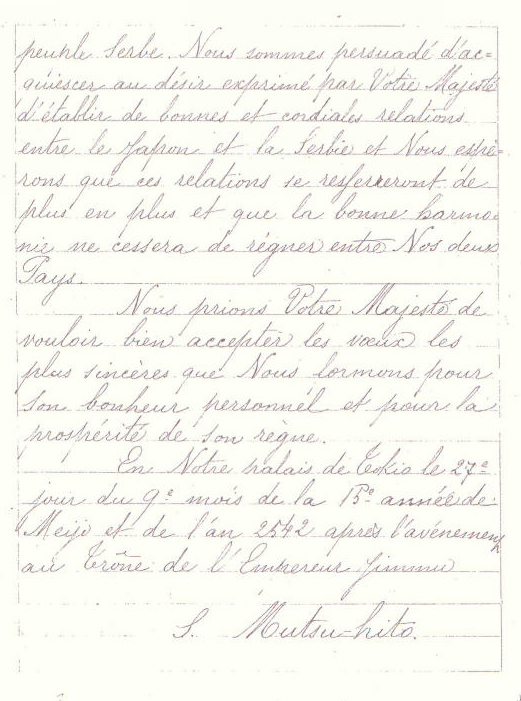 peuhle Serbe. Nous sommes persuadé d'ac=
quiescer au désir exprimé par Votre Majesté
d'établir de bonnes et cordiales relations
entre le Japon et la Serbie et Nous espé=
rons que ces relations se resserreront de
plus en plus et que la bonne harmo=
nie ne cessera de régner entre Nos deux
Pays.
Nous prions Votre Majesté de
vouloir bien accepter les vœux les
plus sincères que Nous formons pour
son bonheur personnel et pour la
prospérité de son règne.
En Notre palais de Tokio le 27e
jour du 9e mois de la 15e année de
Meiji et de l'an 2542 après l'avénement
au Trône de l'Empereur Jimmu
S. Mutsu-hito.